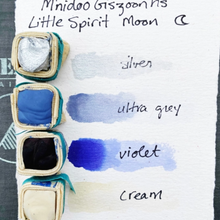 Mnidoo Giizoonhs
Little Spirit Moon
silver
ultra grey
violet
cream